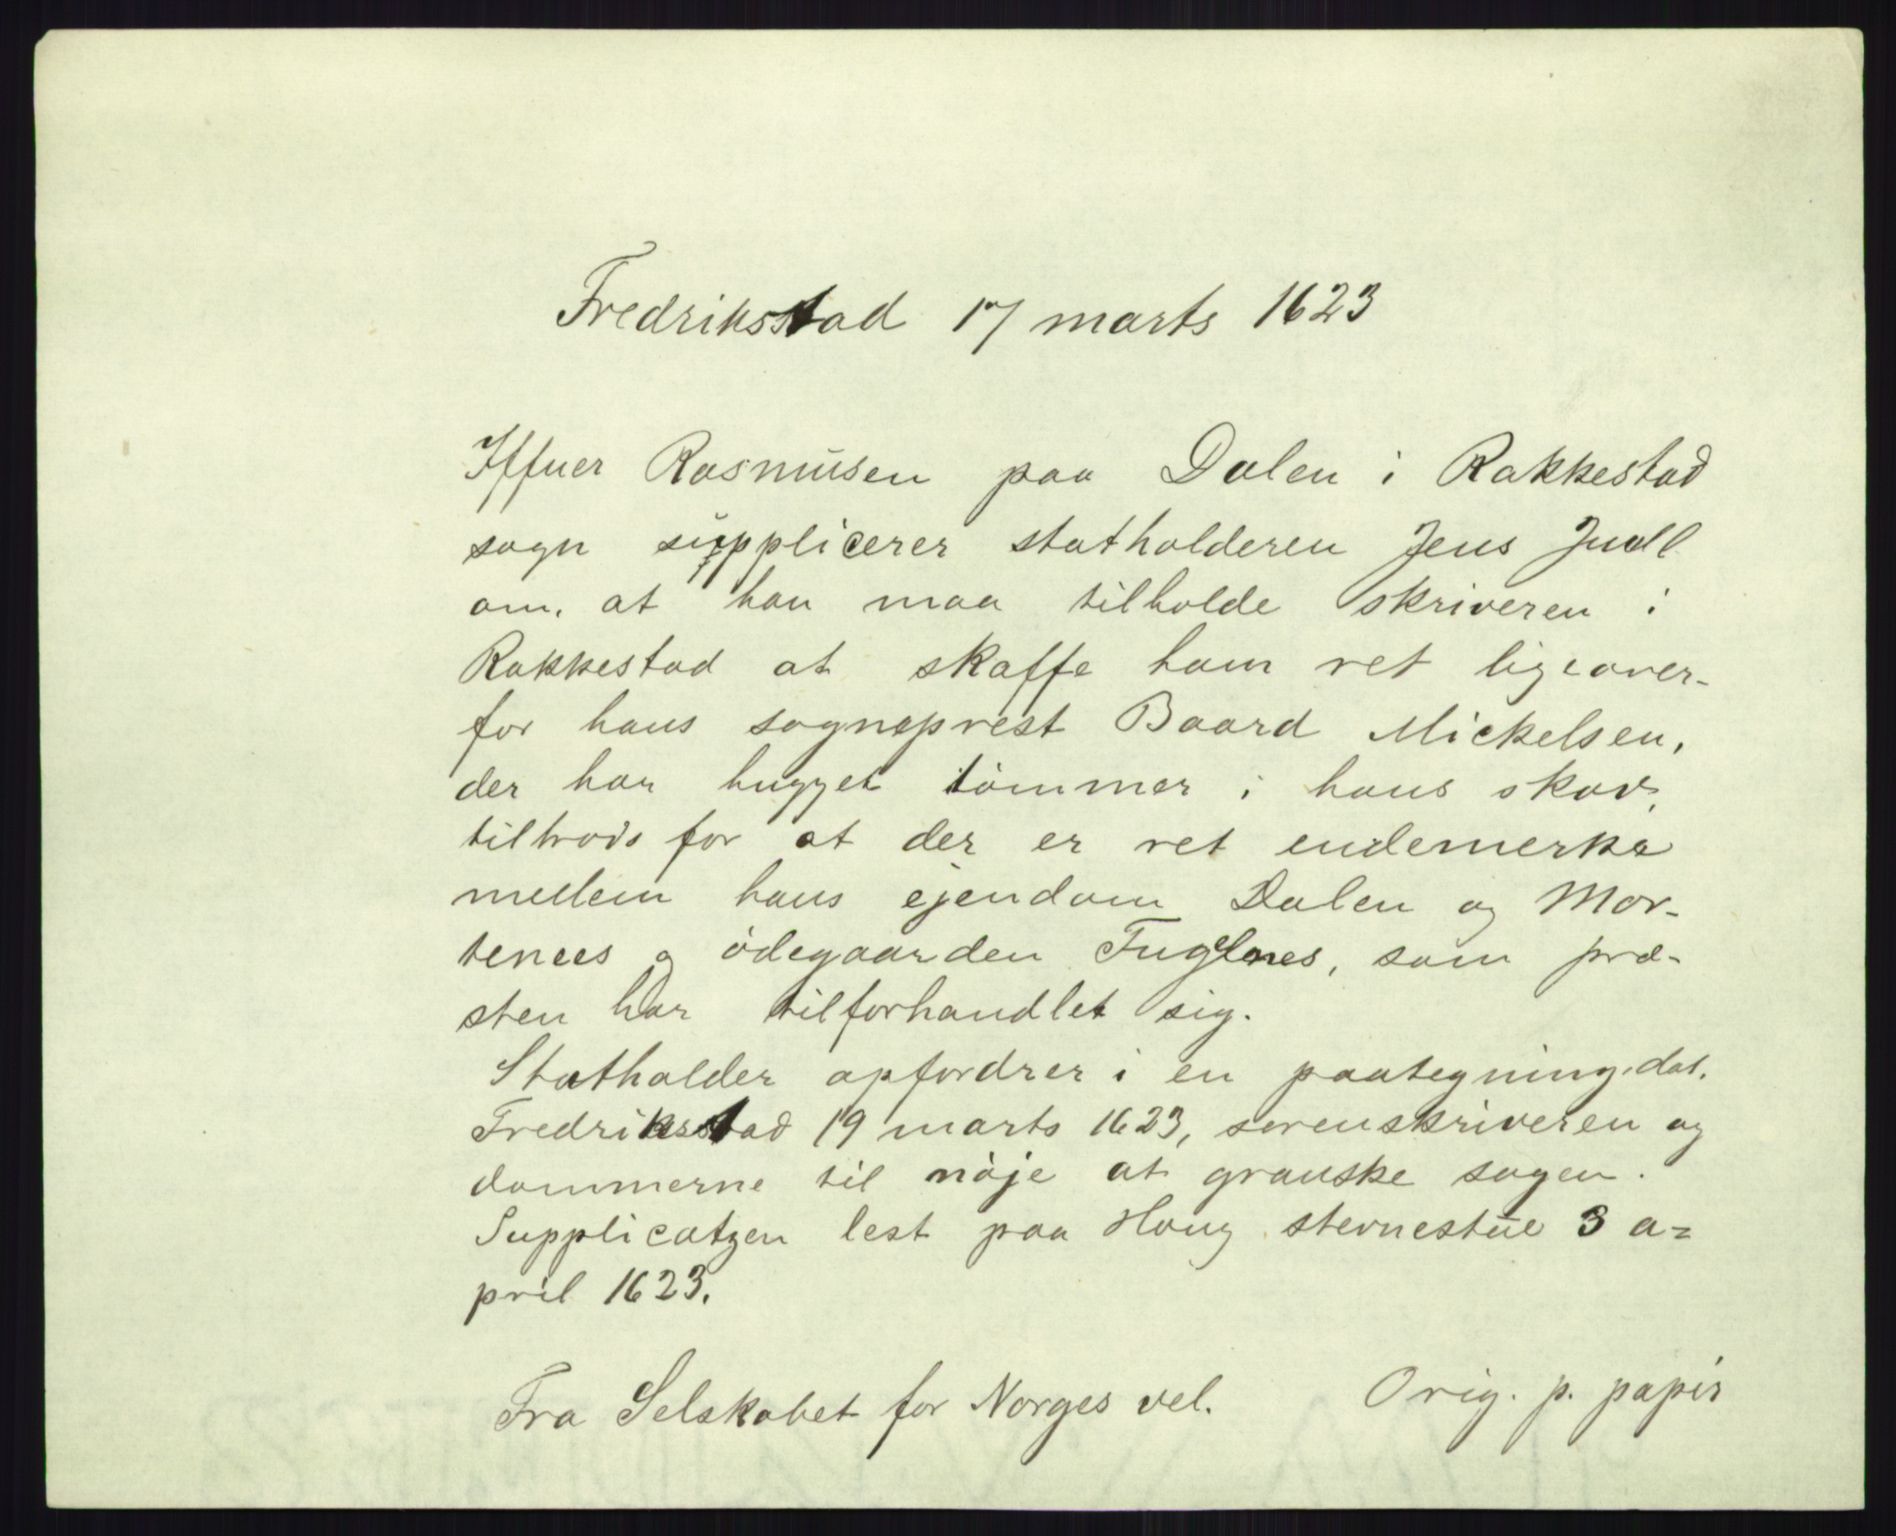 Fredriksstad 17 marts 1623
Iffuer Rasmusen paa Dalen i Rakkestad
sogn supplicerer statholderen Jens Juell
om, at han maa tilholde skriveren i
Rakkestad at skaffe ham ret ligeover-
for hans sogneprest Baard Mickelsen,
der har hugget tømmer i hans skov,
tiltrods for at der er ret endemerke
mellem hans ejendom Dalen og Mor-
tenees og ødegaarden Fuglenes, som præ-
sten har tilforhandlet sig.
Statholder opfordrer i en paategning, dat.
Fredriksstad 19 marts 1623, sorenskriveren og
dommerne til nøje at granske sagen.
Supplicatzen lest paa Houg stevnestue 3 a=
pril 1623.
Fra Selskabet for Norges vel. Orig. p. papir